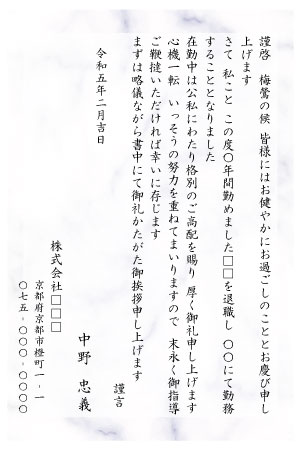 謹啓　梅鶯の候　皆様にはお健やかにお過ごしのこととお慶び申し
上げます
さて　私こと　この度〇年間勤めました□□を退職し　〇〇にて勤務
することとなりました
在勤中は公私にわたり格別のご高配を賜り　厚く御礼申し上げます
心機一転　いっそうの努力を重ねてまいりますので　末永く御指導
ご鞭撻いただければ幸いに存じます
まずは略儀ながら書中にて御礼かたがた御挨拶申し上げます
謹言
令和五年二月吉日
中野　忠義
株式会社□□□
京都府京都市橙町一‐一
〇七五‐〇〇〇‐〇〇〇〇